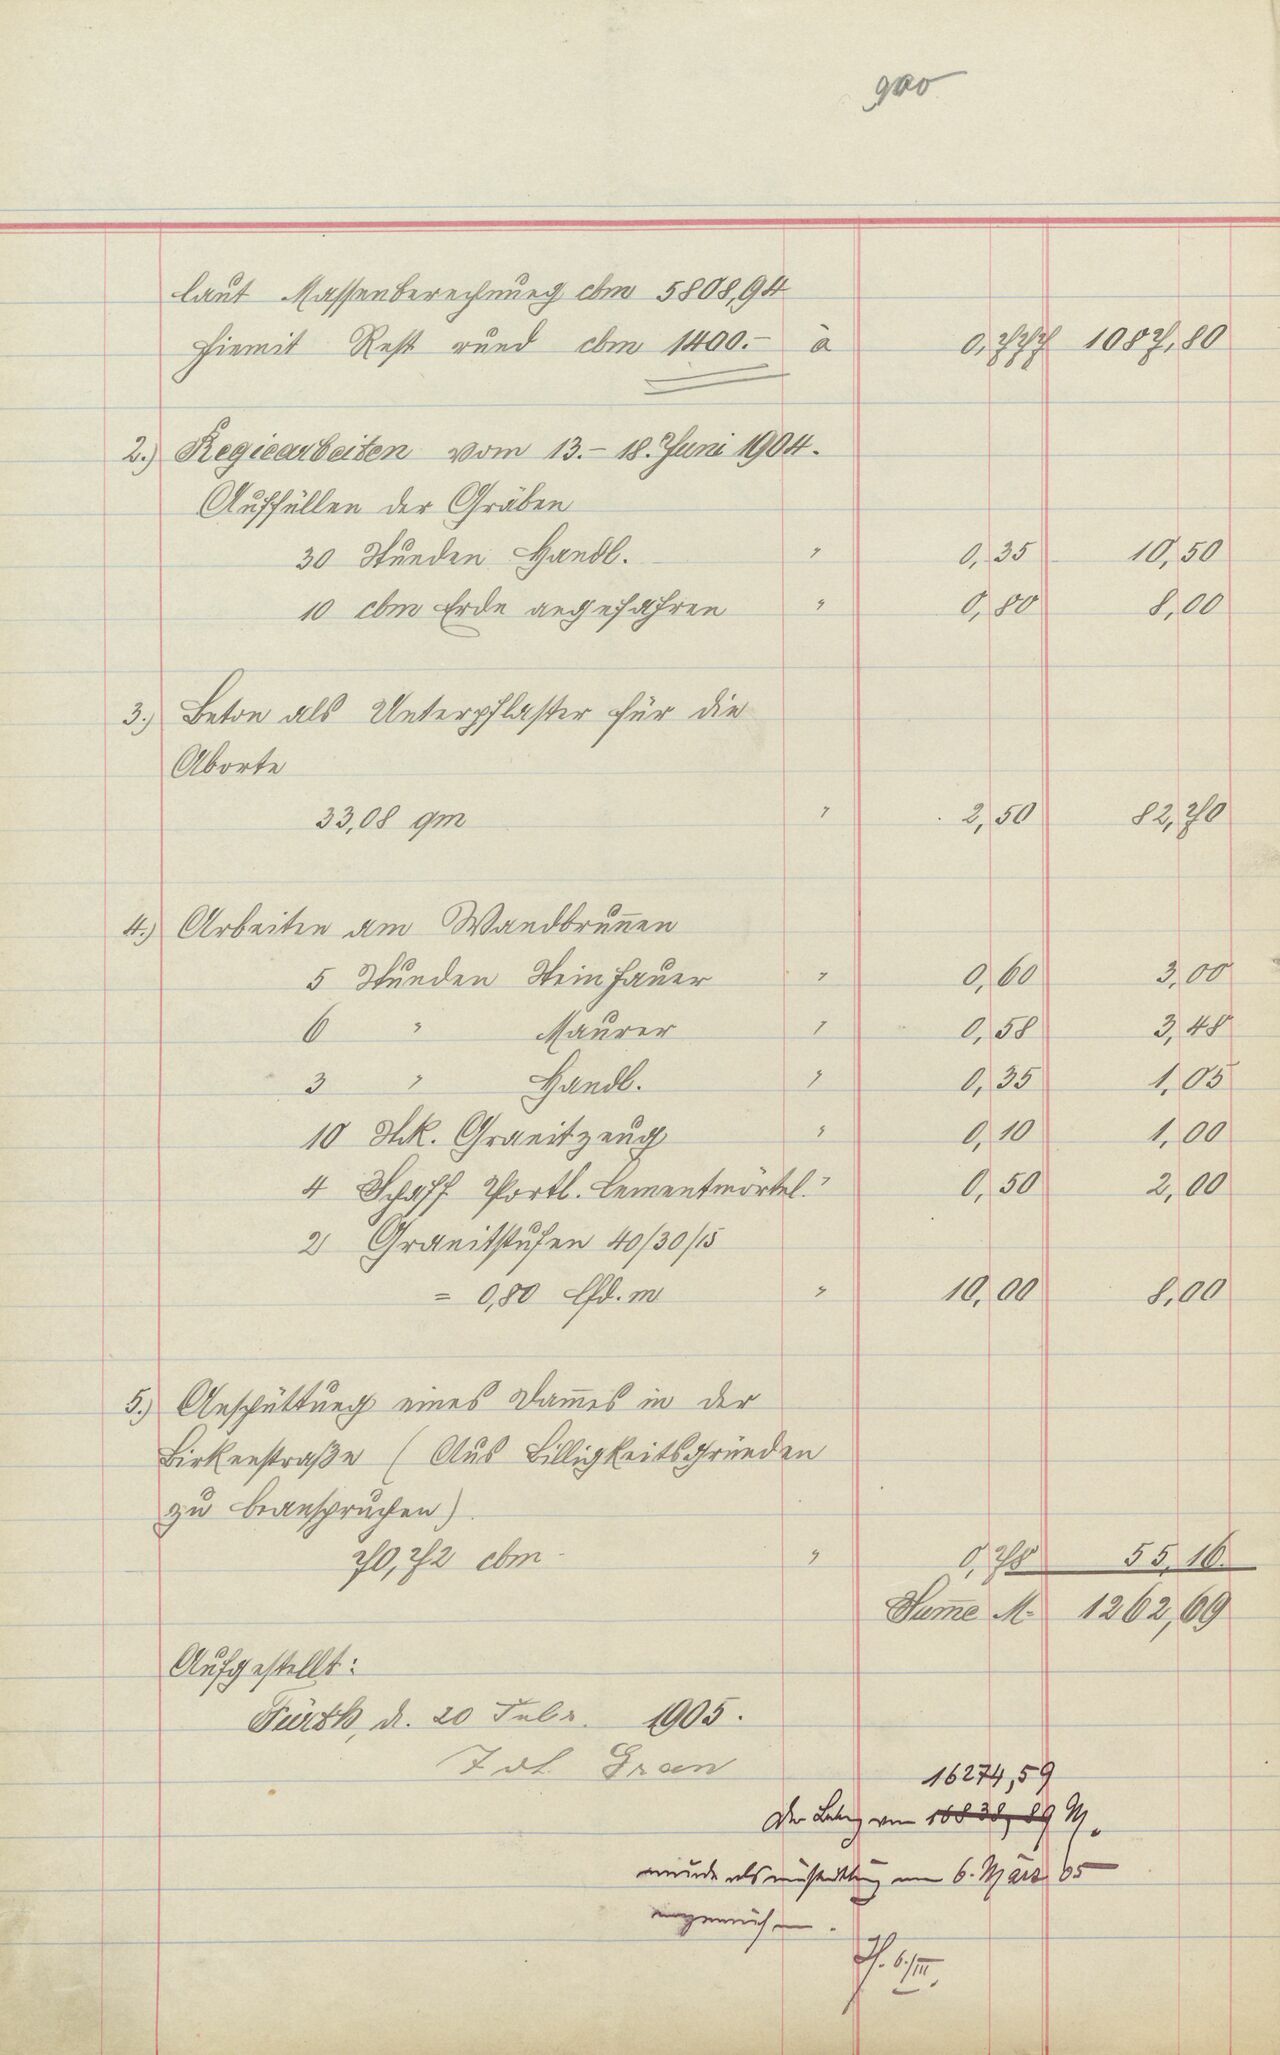 laut Massenberechnung cbm 5808,94
hiemit Rest rund cbm 1400.- à 0,777 1087,80
2.) Regiearbeiten vom 13.- 18. Juni 1904.
Auffüllen der Gräben
30 Stunden Handl. " 0,35 10,50
10 cbm Erde angefahren " 0,80 8,00
3.) Beton als Unterpflaster für die
Aborte
33,08 qm " 2,50 82,70
4.) Arbeiten am Wandbrun̅en
5 Stunden Steinhauer " 0,60 3,00
6 " Maurer " 0,58 3,48
3 " Handl. " 0,35 1,05
10 Stk. Granitzeug " 0,10 1,00
4 Schaff Portl. Cementmörtel. " 0,50 2,00
2 Granitstufen 40/30/15
= 0,80 lfd. m " 10,00 8,00
5.) Anschüttung eines Dam̅es in der
Birkenstraße ( Aus Billigkeitsgründen
zu beanspruchen)
70,72 cbm " 0,78 55,16.
Sum̅e M. 1262,69
Aufgestellt:
Fürth, d. 20 Febr. 1905.
16274,59
Der Betrag von 16838,89 M.
wurde als am 6. März 05
angewiesen.
6./III.